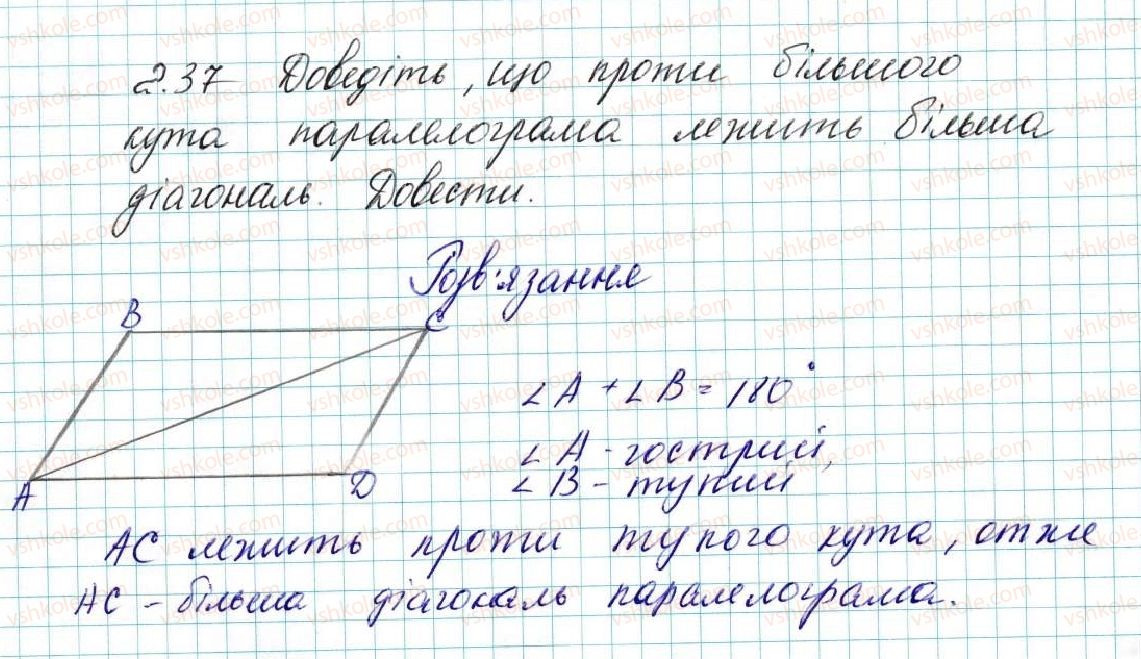 2.37 Доведіть, що проти більшого
кута паралелограма лежить більша
діагональ. Довести.
Розв'язання
B
C
∠A + ∠B = 180°
∠A - гострий,
A
D
∠B - тупий
AC лежить проти тупого кута, отже
AC - більша діагональ паралелограма.
vshkole.com